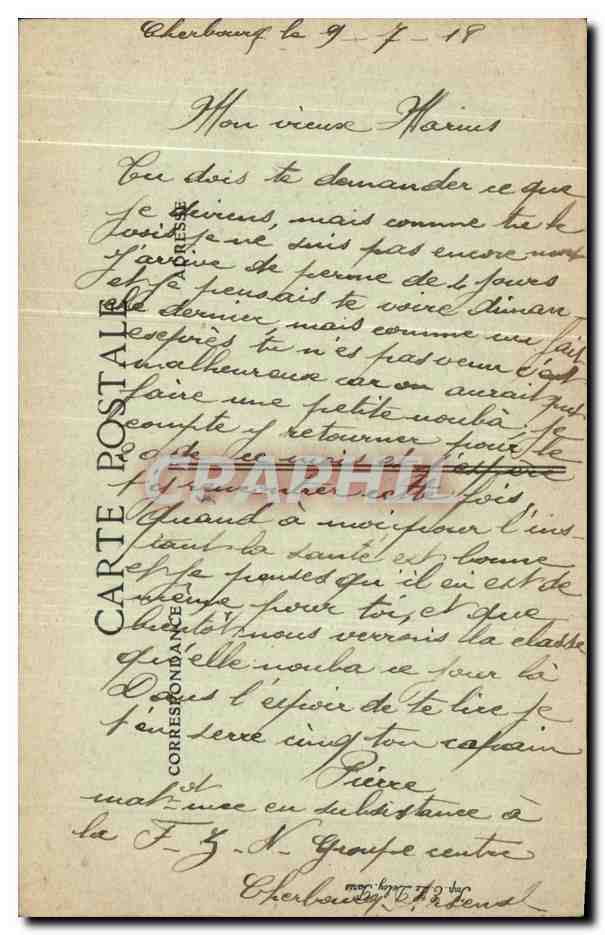 Cherbourg le 9-7-18
Mon vieux Marius
Tu dois te demander ce que
je deviens, mais comme tu le
vois je ne suis pas encore mort
J'arrive de perme de 4 jours
et je pensais te voire diman
che dernier, mais comme un fait
exeprès tu n'es pas venu c'est
malheureux car on aurait put
faire une petite nouba, je
compte y retourner pour le
de ce mois et j'espère
t'y rencontrer cette fois,
Quand à moi pour l'ins-
tant la santé est bonne
et je penses qu'il en est de
même pour toi, et que
bientôt nous verrons la classe
qu'elle nouba ce jour là
Dans l'espoir de te lire je
t'en serre cinq ton copain
Pierre
mat-ot-mce en subsistance à
la F-Z-N- Groupe centre
Cherbourg Arsenal
CARTE POSTALE
CORRESPONDANCE
ADRESSE
CPAPHIL